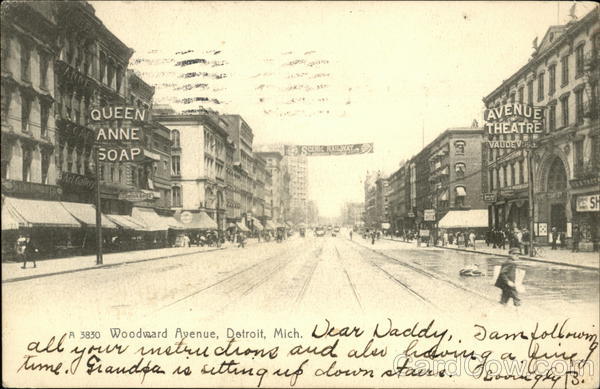 QUEEN
ANNE
SOAP
SCENIC RAILWAY
AVENUE
THEATRE
VAUDEVILLE
SH
A 3830 Woodward Avenue, Detroit, Mich.
Dear Daddy, I am following
all your instructions and also having a fine
time. Grandpa is sitting up down stairs.
Lovingly B.
CardCow.com